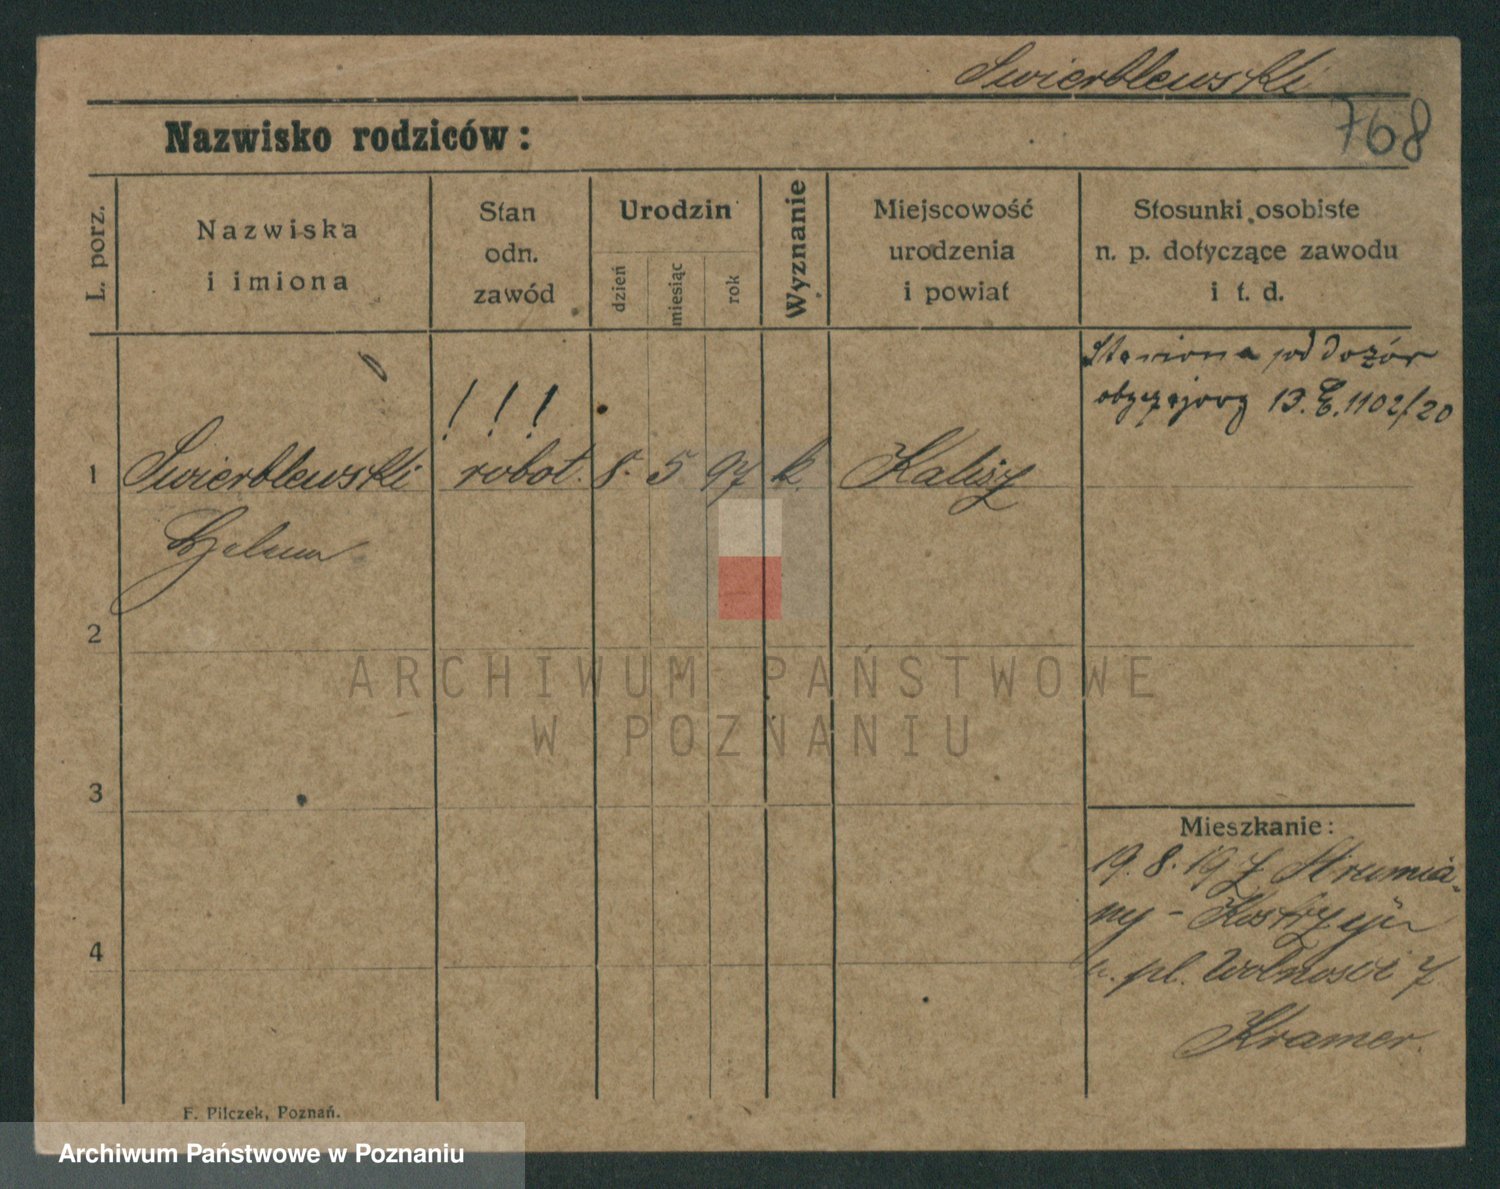 Swierblewski
Nazwisko rodziców:
768
L. porz.
Nazwiska
i imiona
Stan
odn.
zawód
Urodzin
dzień
miesiąc
rok
Wyznanie
Miejscowość
urodzenia
i powiat
Stosunki osobiste
n. p. dotyczące zawodu
i t. d.
pod dozór
13. E. 1102/20
! ! !
1 Swierblewski robot. 8. 5 97 k. Kalisz
2
3
4
Mieszkanie:
19. 8. 19 z Strumia-
ny - Kostrzyn
pl. Wolności 7
Kramer.
F. Pilczek, Poznań.
ARCHIWUM PAŃSTWOWE
W POZNANIU
Archiwum Państwowe w Poznaniu